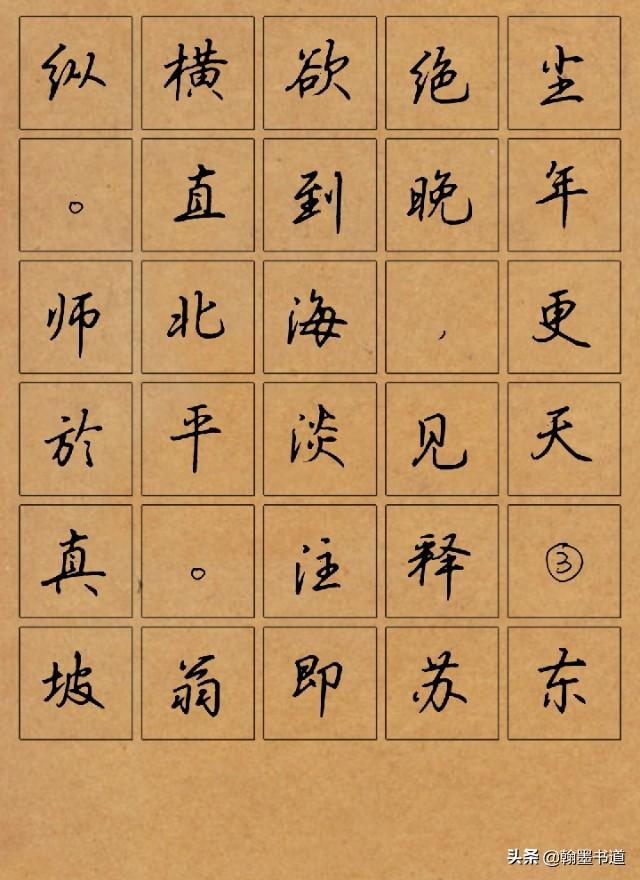 纵横欲绝尘
。直到晚年
师北海，更
於平淡见天
真。注释③
坡翁即苏东
头条 @翰墨书道